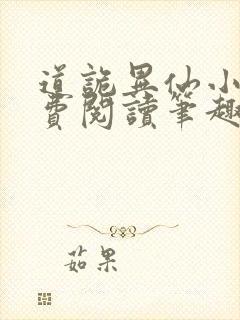 道詭異仙小
費閱讀筆趣
茹果